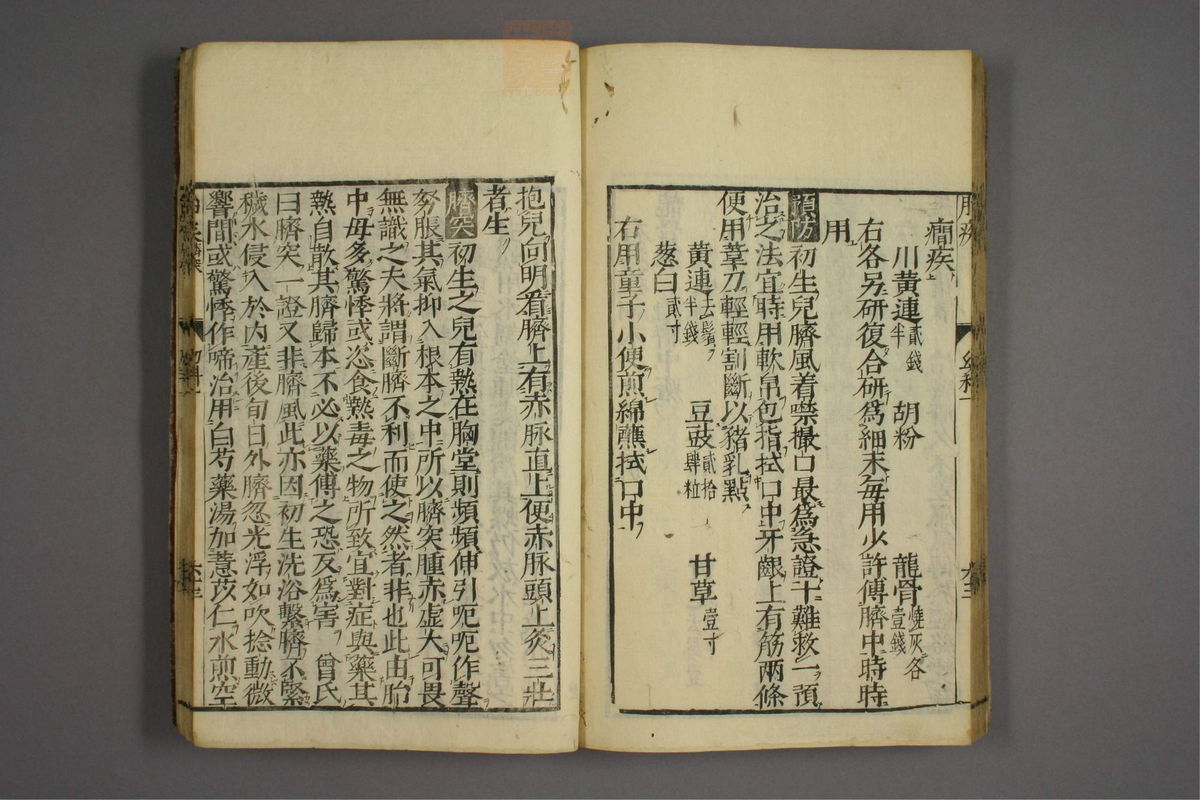 癎疾
川黃連貳錢半 胡粉 龍骨燒灰各壹錢
右各另研復合研爲細末每用少許傅臍中時時
用
預防 初生兒臍風着噤撮口最爲急證十難救一預
治之法宜時用軟帛包指拭口中牙齦上有筋兩條
便用葦刀輕輕割斷以豬乳點
黃連去鬚半錢 豆豉貳拾肆粒 甘草壹寸
葱白貳寸
右用童子小便煎綿蘸拭口中
抱兒向明看臍上有赤脉直上便赤脉頭上灸三壯
者生
臍突 初生之兒有熱在胸堂則頻頻伸引呃呃作聲
努脹其氣抑入根本之中所以臍突腫赤虛大可畏
無識之夫將謂斷臍不利而使之然者非也此由胎
中母多驚悸或恣食熱毒之物所致宜對症與藥其
熱自散其臍歸本不必以藥傅之恐反爲害 曾氏
曰臍突一證又非臍風此亦因初生洗浴繫臍不緊
穢水侵入於內產後旬日外臍忽光浮如吹捻動微
響間或驚悸作啼治用白芍藥湯加薏苡仁水煎空